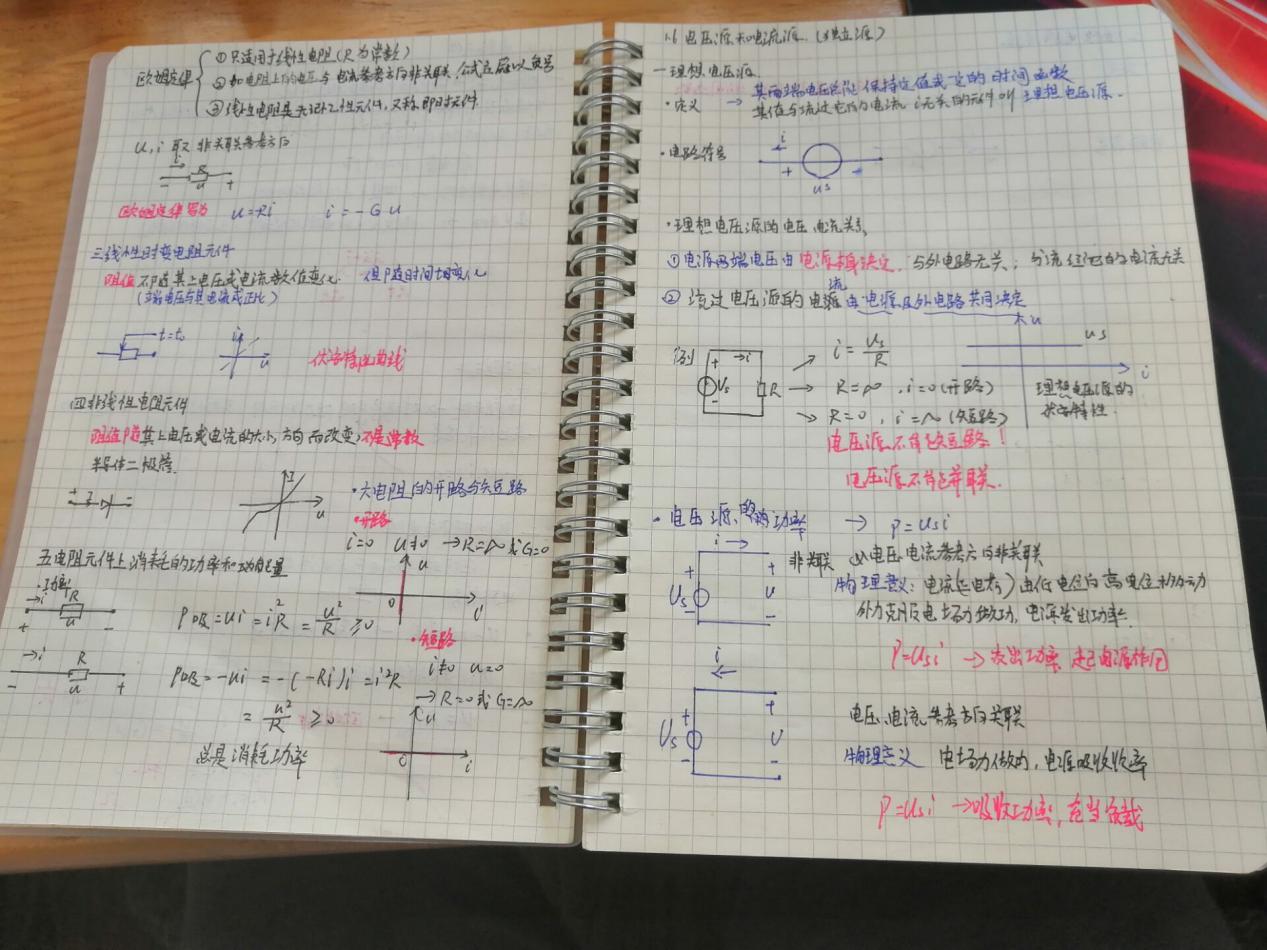 欧姆定律
① 只适用于线性电阻(R为常数)
② 如电阻上的电压与电流参考方向非关联,公式应冠以负号
③ 线性电阻是无记忆性元件,又称即时元件.
u,i 取 非关联参考方向
i
R
- u +
欧姆定律写为 u=Ri i=-Gu
三线性时变电阻元件
阻值不随其上电压或电流数值变化. 但随时间t变化
(端电压与其电流成正比)
t=t₀ i u 伏安特性曲线
四非线性电阻元件
阻值随其上电压或电流的大小,方向而改变,不是常数
半导体二极管.
+ - I u
·六电阻的开路与短路
·开路
i=0 u≠0 →R=∞或G=0
u
0 i
五电阻元件上消耗的功率和能量
·功率
→i R
+ u -
P吸=ui=i²R=u²/R ≥0
·短路
i≠0 u=0
→R=0或G=∞
→i R
- u +
P吸=-ui=-(-Ri)i=i²R
=u²/R ≥0
总是消耗功率
u
0 i
1.6 电压源和电流源.(独立源)
一理想电压源.
·定义 → 其两端电压总能保持定值或一定的时间函数
其值与流过它的电流i无关的元件叫理想电压源.
·电路符号
i
+ -
us
·理想电压源的电压、电流关系
①电源两端电压由电源本身决定,与外电路无关;与流经它的电流大关
②流过电压源的电流由电源及外电路共同决定
例
+ →i
Us R
-
→ i=Us/R
→ R=∞, i=0(开路)
→ R=0, i=∞(短路)
u
us
i
理想电压源的
伏安特性.
电压源不能短路!
电压源不能并联.
·电压源的功率 → P=usi
i→
+ +
Us U
- -
非关联 ①电压电流参考方向非关联
物理意义:电流(正电荷)由低电位向高电位移动
外力克服电场力做功,电源发出功率.
P=usi →发出功率,起电源作用
i
←
+ +
Us U
- -
电压、电流参考方向关联
物理意义 电场力做功,电源吸收功率
P=usi →吸收功率,充当负载